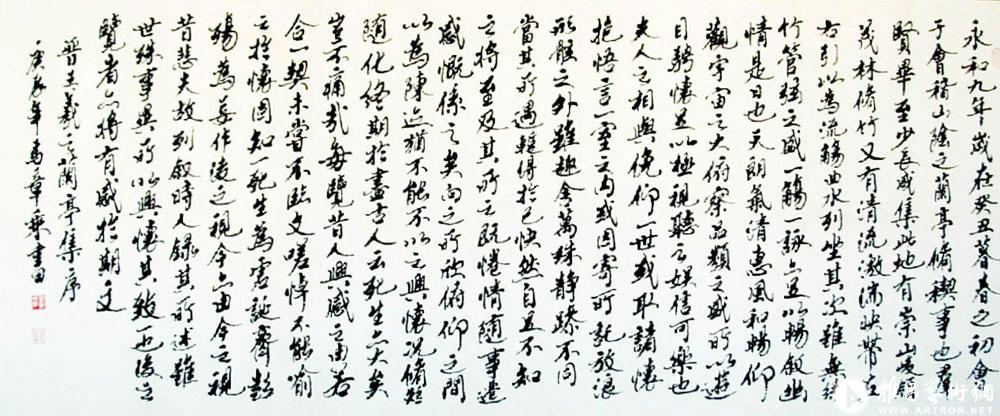 永和九年歲在癸丑暮春之初會
于會稽山陰之蘭亭脩禊事也羣
賢畢至少長咸集此地有崇山峻領
茂林脩竹又有清流激湍映帶左
右引以為流觴曲水列坐其次雖無絲
竹管弦之盛一觴一詠亦足以暢敘幽
情是日也天朗氣清惠風和暢仰
觀宇宙之大俯察品類之盛所以遊
目騁懷足以極視聽之娛信可樂也
夫人之相與俛仰一世或取諸懷
抱悟言一室之內或因寄所託放浪
形骸之外雖趣舍萬殊靜躁不同
當其所遇輒得於己快然自足不知
之將至及其所之既惓情隨事遷
感慨係之矣向之所欣俯仰之間
以為陳迹猶不能不以之興懷況脩短
隨化終期於盡古人云死生亦大矣
豈不痛哉每覽昔人興感之由若
合一契未嘗不臨文嗟悼不能喻
之於懷固知一死生為虛誕齊彭
殤為妄作後之視今亦由今之視
昔悲夫故列敘時人錄其所述雖
世殊事異所以興懷其致一也後之
覽者亦將有感於斯文
晉王羲之蘭亭集序
庚辰年馬章乘書
雅昌藝術網
WWW.ARTRON.NET